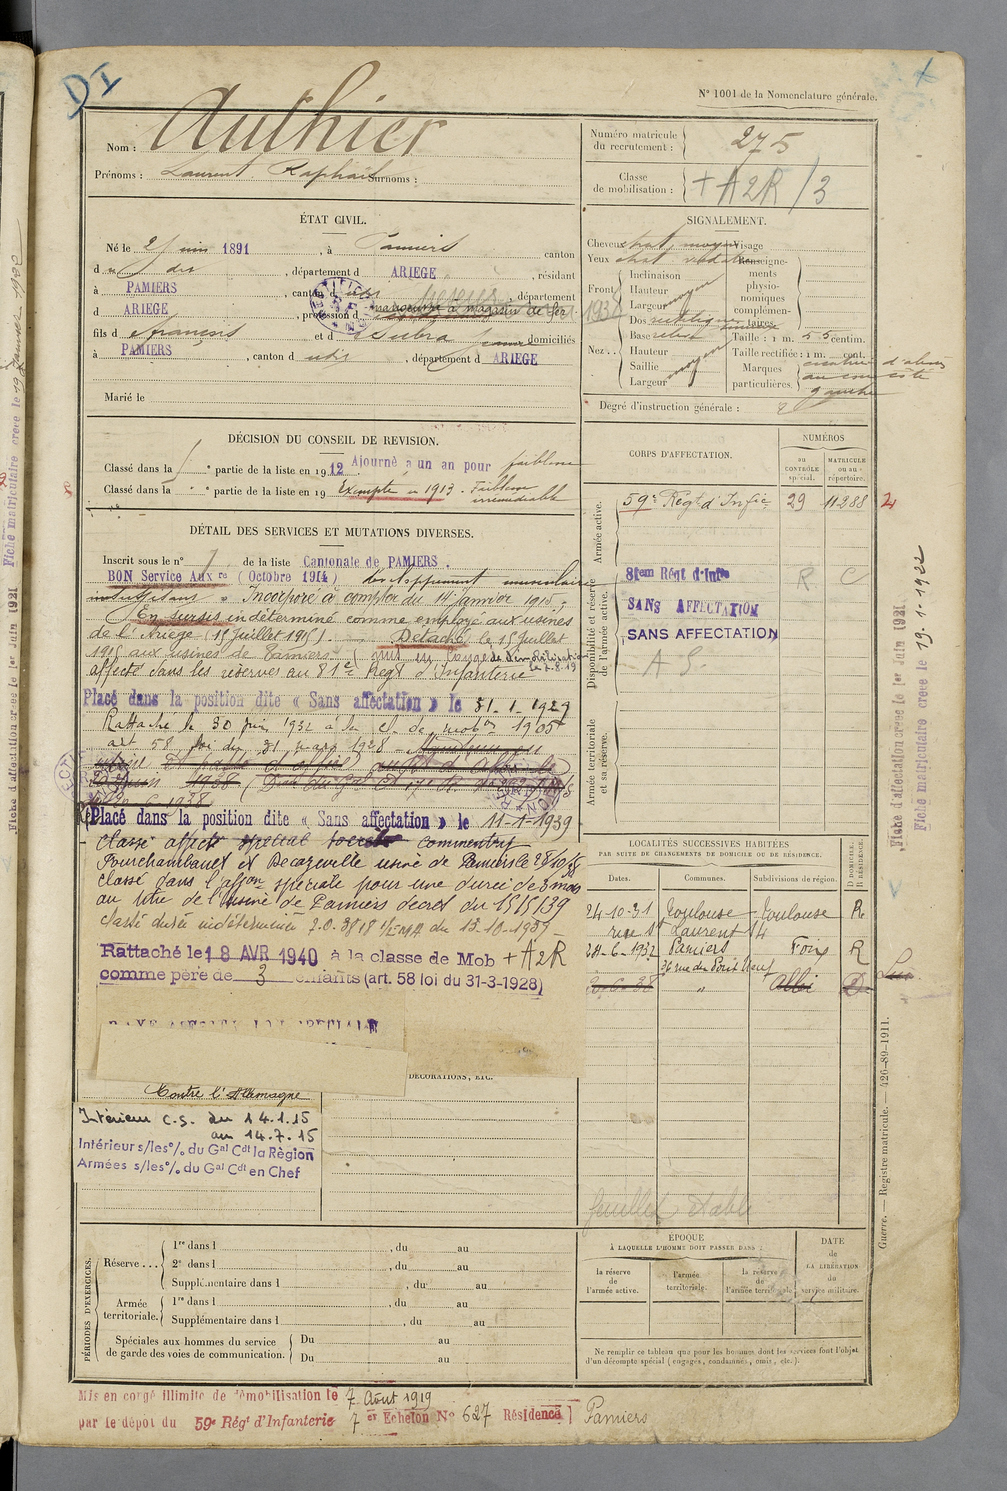 DI
N° 1001 de la Nomenclature générale.
Nom : Authier
Prénoms : Laurent Raphaël Surnoms :
Numéro matricule du recrutement : 275
Classe de mobilisation : + A2R /3
ÉTAT CIVIL.
Né le 2 juin 1891, à Pamiers canton
d u dit, département d ARIEGE, résidant
à PAMIERS, canton d udit, département
d ARIEGE, profession d manœuvre magasin de fer
fils d François et d Subra domiciliés
à PAMIERS, canton d udit, département d ARIEGE
Marié le
SIGNALEMENT.
Cheveux chat. moyen Visage
Yeux chat.
Renseignements physionomiques complémentaires
Front Inclinaison
Hauteur
Largeur moyen
Nez Dos rectiligne
Base
Hauteur
Saillie
Largeur moyen
Taille : 1 m. 55 centim.
Taille rectifiée : 1 m. cent.
Marques particulières. cicatrice d'abcès
au cou côté
gauche
Degré d'instruction générale : 2
DÉCISION DU CONSEIL DE REVISION.
Classé dans la 5° partie de la liste en 1912 Ajourné à un an pour faiblesse
Classé dans la ° partie de la liste en 19 Exempté en 1913 - Faiblesse irrémédiable
DÉTAIL DES SERVICES ET MUTATIONS DIVERSES.
Inscrit sous le n° 7 de la liste Cantonale de PAMIERS.
BON Service Aux re (Octobre 1914) développement musculaire
insuffisant. Incorporé à compter du 14 janvier 1915.
En sursis indéterminé comme employé aux usines
de l'Ariège (15 juillet 1915). Détaché le 15 juillet
1915 aux usines de Pamiers (mis en Congé de démobilisation le 7.8.19
affecté dans les réserves au 81e Régt d'Infanterie
Placé dans la position dite « Sans affectation » le 31-1-1929
Rattaché le 30 juin 1932 à la cl. de mobon 1905
art 58 loi du 31 mars 1928
Placé dans la position dite « Sans affectation » le 11-1-1939
Classé affecté spécial commentry
Fourchambault et Decazeville usine de Pamiers le 28/10/38
classé dans l'affon spéciale pour une durée de 3 mois
au titre de l'usine de Pamiers décret du 15/5/39
classé durée indéterminée 13-10-1939
Rattaché le 18 AVR 1940 à la classe de Mob + A2R
comme père de 3 enfants (art. 58 loi du 31-3-1928)
DÉCORATIONS, ETC.
Contre l'Allemagne
Intérieur C.S. du 14.1.15
au 14.7.15
Intérieur s/les °/. du Gal Cdt la Règion
Armées s/les °/. du Gal Cdt en Chef
CORPS D'AFFECTATION.
NUMÉROS
au CONTRÔLE spécial.
MATRICULE ou au répertoire.
Armée active.
59e Régt d'Infie 29 11288
Disponibilité et réserve de l'armée active.
81em Régt d'Infie R C
SANS AFFECTATION
SANS AFFECTATION
A S.
Armée territoriale et sa réserve.
LOCALITÉS SUCCESSIVES HABITÉES
PAR SUITE DE CHANGEMENTS DE DOMICILE OU DE RÉSIDENCE.
Dates. Communes. Subdivisions de région. D DOMICILE. R RÉSIDENCE.
24-10-31 Toulouse Toulouse R
rue St Laurent 14
24-6-1932 Pamiers Foix R
36 rue du Pont Neuf
3-6-38 " Albi D
feuillet établi
PÉRIODES D'EXERCICES.
Réserve ... 1re dans l , du au
2e dans l , du au
Supplémentaire dans l , du au
Armée territoriale. 1re dans l , du au
Supplémentaire dans l , du au
Spéciales aux hommes du service de garde des voies de communication. Du au
Du au
ÉPOQUE
À LAQUELLE L'HOMME DOIT PASSER DANS :
la réserve de l'armée active.
l'armée territoriale.
la réserve de l'armée territoriale
DATE de LA LIBÉRATION du service militaire.
Ne remplir ce tableau que pour les hommes dont les services font l'objet
d'un décompte spécial (engagés, condamnés, omis, etc.).
Mis en congé illimité de démobilisation le 7 Août 1919
par le dépôt du 59e Régt d'Infanterie 7 er Echelon No 627 Résidence ] Pamiers
Fiche d'affectation créée le 1er Juin 1921
Fiche matriculaire créée le 19-1-1922
Guerre. — Registre matricule. — 426-89-1911.
Fiche d'affectation créée le 1er Juin 1921
Fiche matriculaire créée le 19 Janvier 1922